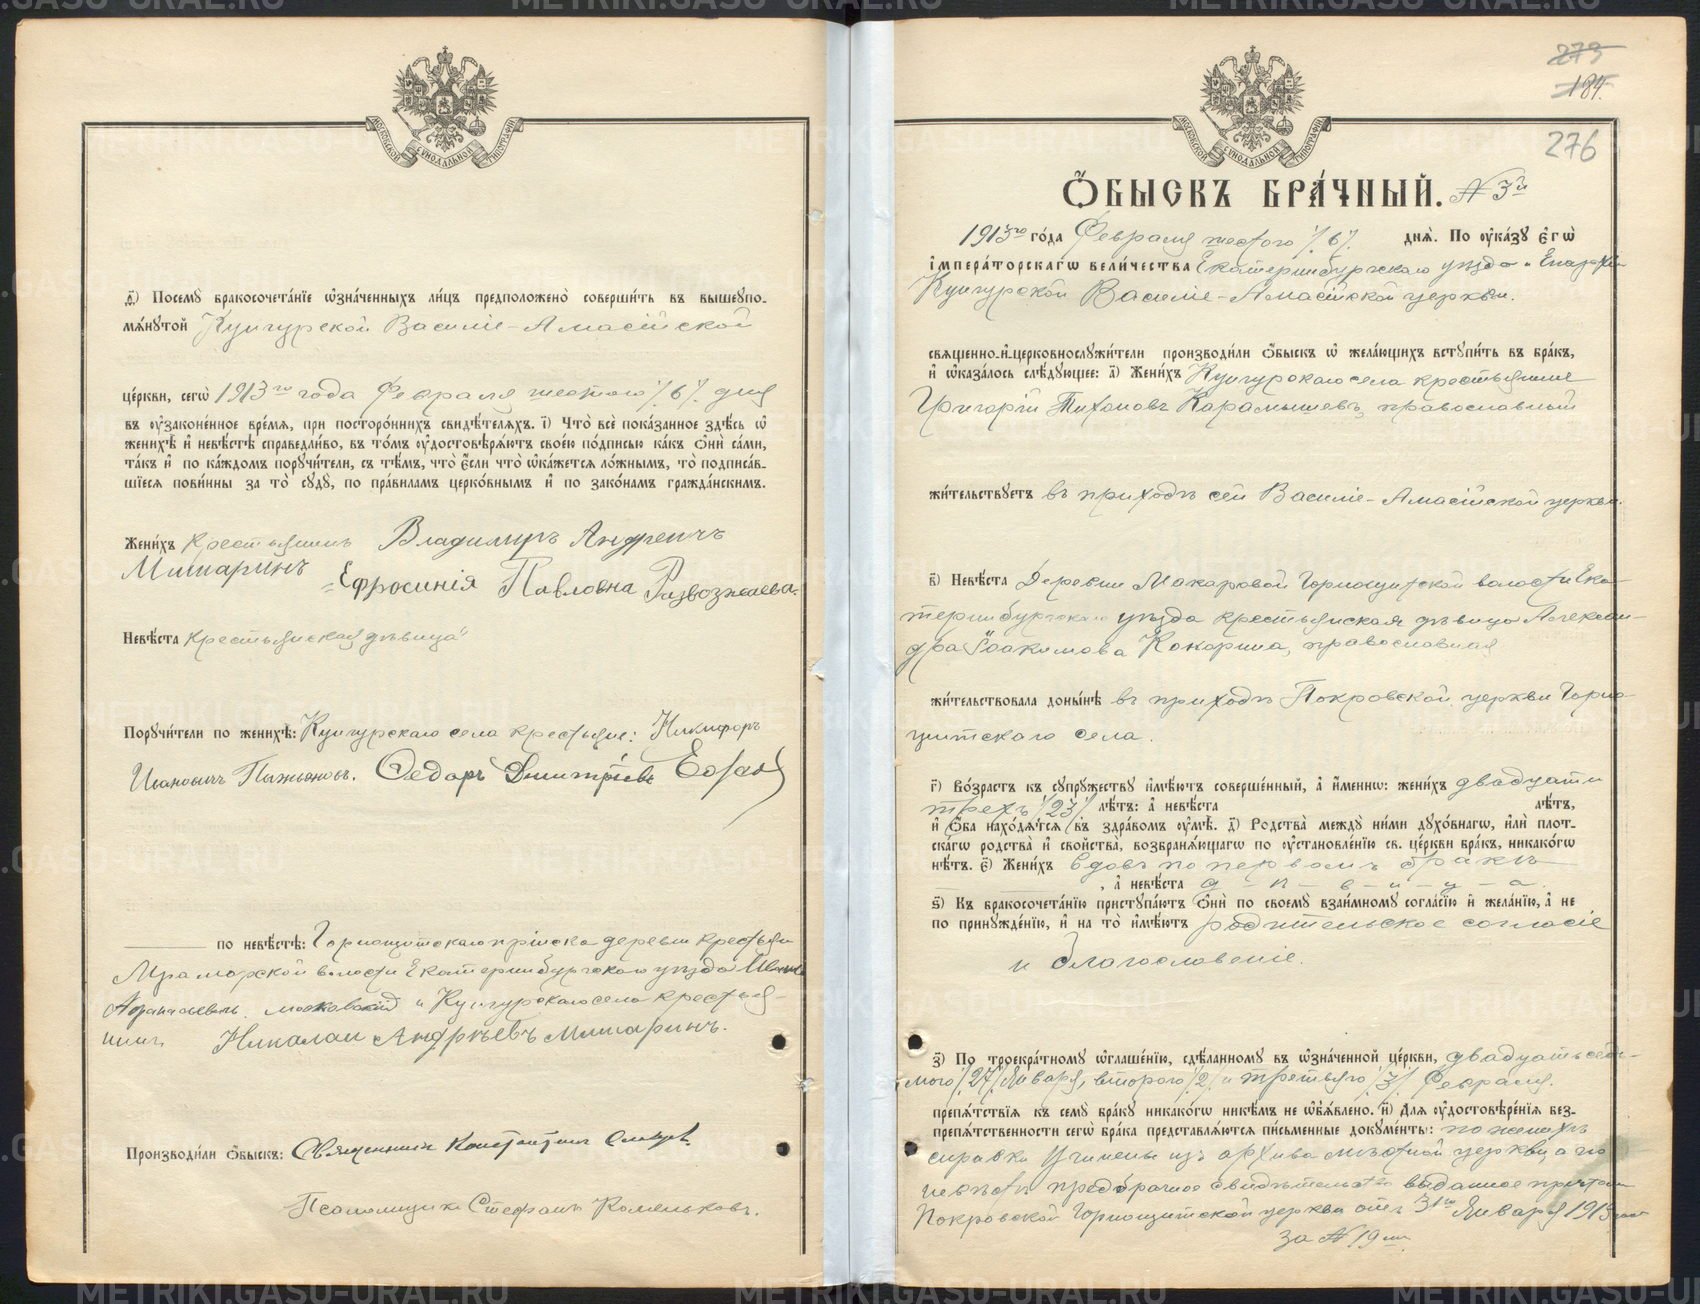 ѳ҃) Посемꙋ̀ бракосочета́нїе ѡ҆зна́ченныхъ ли́цъ предположено̀ соверши́ть въ вышеꙋпо-
мѧ́нꙋтой Кунгурской Василіе-Амасійской
це́ркви, сегѡ̀ 1913го года Февраля шестого /6/ дня
въ ᲂу҆зако́ненное вре́мѧ, при посторо́ннихъ свидѣ́телѧхъ. і҃) Что̀ всѐ пока́занное здѣ́сь ѡ҆
женихѣ̀ и҆ невѣ́стѣ справедли́во, въ то́мъ ᲂу҆достовѣрѧ́ютъ свое́ю по́дписью ка́къ ѻ҆нѝ са́ми,
та́къ и҆ по ка́ждомъ порꙋчи́тели, съ тѣ́мъ, что̀ є҆́сли что̀ ѡ҆ка́жетсѧ ло́жнымъ, то̀ подписа́в-
шїесѧ пови́нны за то̀ сꙋдꙋ̀, по пра́виламъ церко́внымъ и҆ по зако́намъ гражда́нскимъ.
Жени́хъ крестьянинъ Владимиръ Андреичъ
Мишаринъ Ефросинія Павловна Развозжаева
Невѣ́ста крестьянская дѣвица
Порꙋчи́тели по женихѣ̀: Кунгурскаго села крестьяне: Никифоръ
Ивановичъ Пыжьяновъ. Федаръ Дмитрiевъ
по невѣ́стѣ: Горнощитскаго прiиска деревни крестьянинъ
Мраморской волости Екатеринбургскаго уѣзда
Афанасьевъ и Кунгурскаго села крестья-
нинъ Николаи Андрѣевъ Мишаринъ.
Производи́ли ѻ҆́быскъ: Священникъ Константинъ
Псаломщикъ Стефанъ Коменьковъ.
279
184
276
Ѻ҆́БЫСКЪ БРА́ЧНЫЙ. № 3й
1913го го́да Февраля шестого /6/ днѧ̀. По ᲂу҆ка́зꙋ є҆гѡ̀
і҆мпера́торскагѡ вели́чества Екатеринбургскаго уѣзда и Епархіи
Кунгурской Василіе-Амасійской церкви.
свѧще́нно-и҆-церковнослꙋжи́тели производи́ли ѻ҆́быскъ ѡ҆ жела́ющихъ встꙋпи́ть въ бра́къ,
и҆ ѡ҆каза́лось слѣ́дꙋющее: а҃) Жени́хъ Кунгурскаго села крестьянинъ
Григорій Тихоновъ Карамышевъ, православный
жи́тельствꙋетъ въ приходѣ сей Василіе-Амасійской церкви.
в҃) Невѣ́ста Деревни Макаровой Горнощитской волости Ека-
теринбургскаго уѣзда крестьянская дѣвица Алексан-
дра Іоакимова Кокорина, православная
жи́тельствовала доны́нѣ въ приходѣ Покровской церкви Горно-
щитскаго села.
г҃) Во́зрастъ къ сꙋпрꙋ́жествꙋ и҆мѣ́ютъ соверше́нный, а҆ и҆́меннѡ: жени́хъ двадцати
трехъ /23/ лѣ́тъ: а҆ невѣ́ста лѣ́тъ,
и҆ ѻ҆́ба нахо́дѧтсѧ въ здра́вомъ ᲂу҆мѣ̀. д҃) Родства̀ междꙋ̀ ни́ми дꙋхо́внагѡ, и҆лѝ плот-
ска́гѡ родства̀ и҆ сво́йства̀, возбранѧ́ющагѡ по ᲂу҆становле́нїю св. це́ркви бра́къ, никако́гѡ
нѣ́тъ. є҃) Жени́хъ вдовъ по первомъ бракѣ
, а҆ невѣ́ста д-ѣ-в-и-ц-а.
ѕ҃) Къ бракосочета́нїю пристꙋпа́ютъ ѻ҆нѝ по своемꙋ̀ взаи́мномꙋ согла́сїю и҆ жела́нїю, а҆ не
по принꙋжде́нїю, и҆ на то̀ и҆мѣ́ютъ родительское согласіе
и благословеніе.
з҃) По троекра́тномꙋ ѡ҆глаше́нїю, сдѣ́ланномꙋ въ ѡ҆зна́ченной це́ркви, двадцать седь-
мого /27/ Января, второго /2/ и третьяго /3/ Февраля.
препѧ́тствїѧ къ семꙋ̀ бра́кꙋ никако́гѡ никѣ́мъ не ѡ҆б̾ѧ́влено. и҃) Длѧ ᲂу҆достовѣре́нїѧ без-
препѧ́тственности сегѡ̀ бра́ка представлѧ́ютсѧ пи́сьменные докꙋме́нты: по женихѣ
справки учинены изъ архива мѣстной церкви, а по
невѣстѣ предбрачное свидѣтельство выданное причтомъ
Покровской Горнощитской церкви отъ 31го Января 1913 года
за № 19мъ